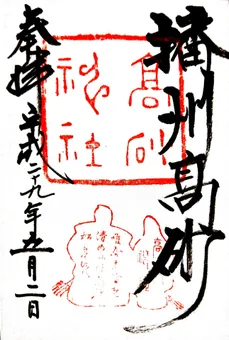 播州高砂
高砂神社
奉拝 平成二十九年五月二日